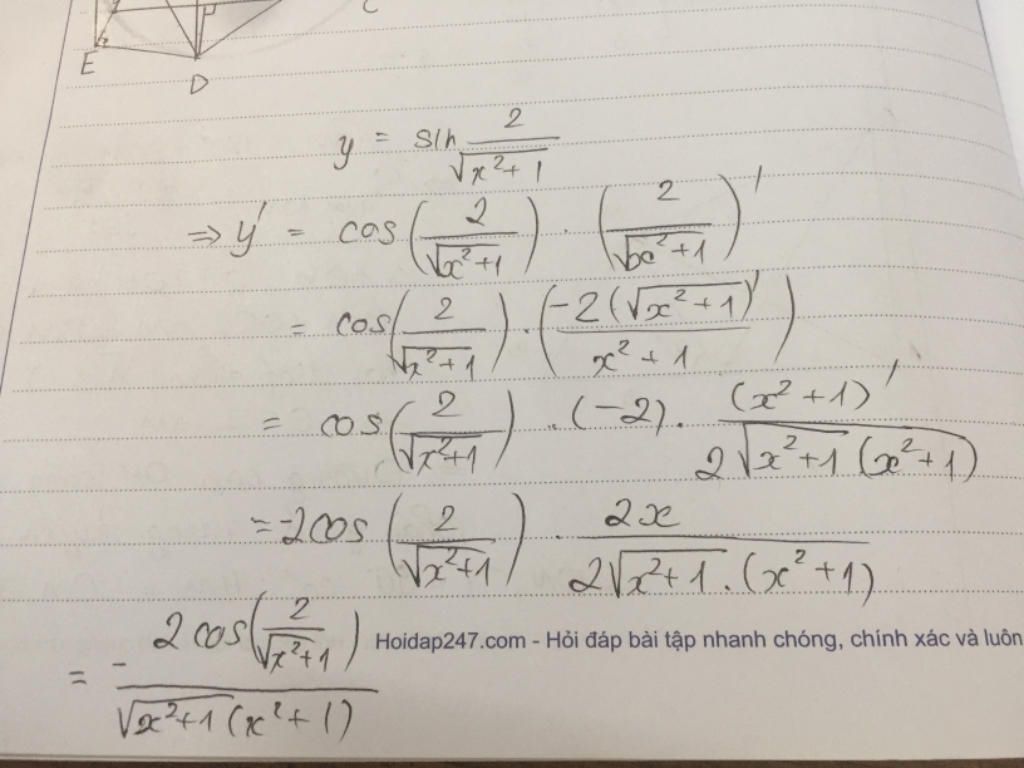 C
E
D
y = sin 2/√(x²+1)
⇒ y' = cos(2/√(x²+1)) . (2/√(x²+1))'
= cos(2/√(x²+1)) . (-2(√(x²+1))'/x²+1)
= cos(2/√(x²+1)) . (-2) . (x²+1)'/2√(x²+1) (x²+1)
= -2cos(2/√(x²+1)) . 2x/2√(x²+1) . (x²+1)
= - 2cos(2/√(x²+1))/√(x²+1) (x²+1)
Hoidap247.com - Hỏi đáp bài tập nhanh chóng, chính xác và luôn